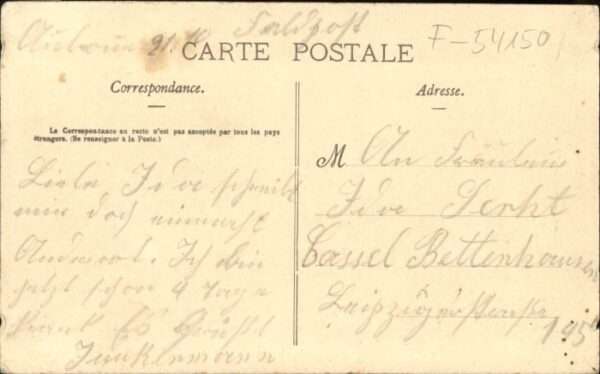 Feldpost
F-54150
CARTE POSTALE
Correspondance.
Adresse.
La Correspondance au recto n'est pas acceptée par tous les pays
étrangers. (Se renseigner à la Poste.)
Liebe Ida schreibt
mir doch einmahl
Andwort. Ich bin
jetzt schon 4 Tage
krank Es grüßt
M An Fräulein
Ida
Cassel Bettenhausen
Leipzigerstraße
195